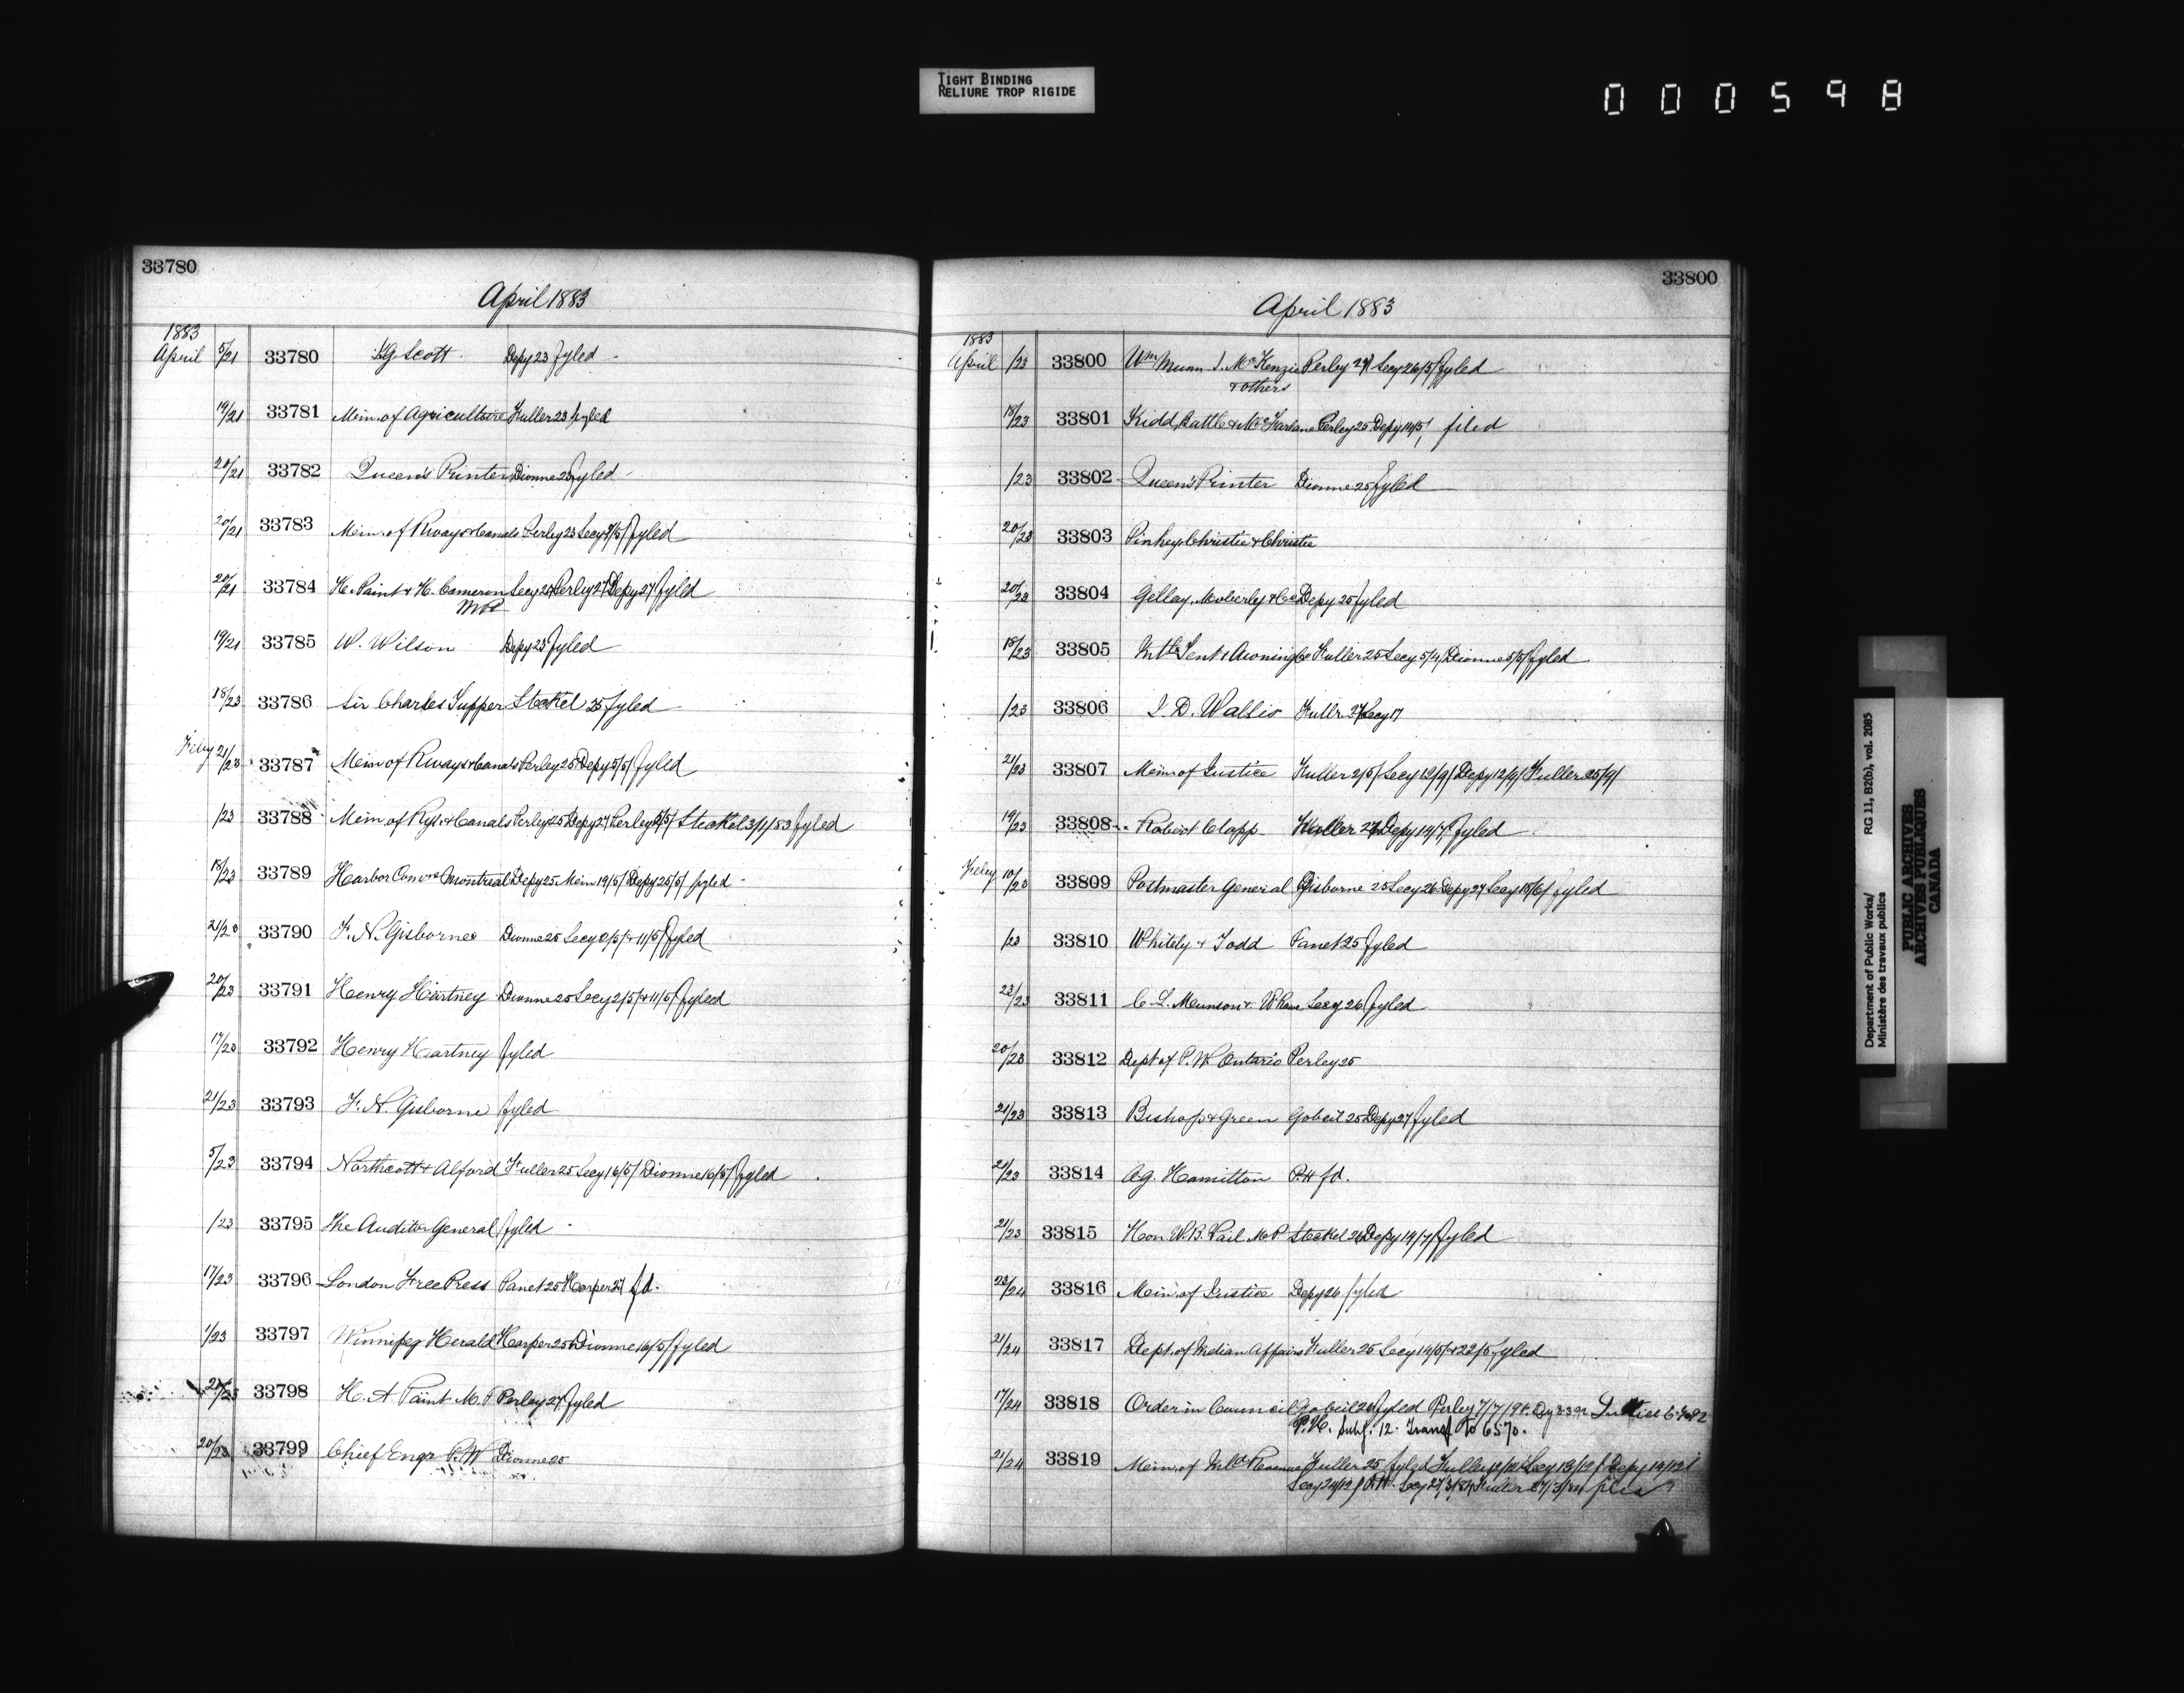 TIGHT BINDING
RELIURE TROP RIGIDE
000598
33780
April 1883
1883
April 5/21 33780 Scott Depy 23 fyled
19/21 33781 Min. of Agriculture Fuller 23 fyled
20/21 33782 Queen's Printer Dionne 23 fyled
20/21 33783 Min. of Rways & Canals Perley 23 Secy fyled
20/21 33784 H. Paint & H. Cameron Secy Perley 27 Depy 27 fyled
MP
19/21 33785 W. Wilson Depy 23 fyled
18/23 33786 Sir Charles Tupper Steckel 25 fyled
21/23 33787 Min of Rways & Canals Perley 25 Depy 5/5/ fyled
/23 33788 Min. of Rys. & Canals Perley 25 Depy 27 Perley Steckel fyled
18/23 33789 Harbor Comrs Montreal Depy 25 Min 19/5/ Depy 25/5/ fyled
21/23 33790 F. N. Gisborne Dionne 25 Secy 2/5/ & 11/5/ fyled
20/23 33791 Henry Hartney Dionne 25 Secy 2/5/ & 11/5/ fyled
17/23 33792 Henry Hartney fyled
21/23 33793 F. N. Gisborne fyled
5/23 33794 Northcott & Alford Fuller 25 Secy 16/5/ Dionne 16/5/ fyled
/23 33795 The Auditor General fyled
17/23 33796 London Free Press Panet 25 Harper 27 fd.
1/23 33797 Winnipeg Herald Harper 25 Dionne 16/5/ fyled
33798 H. A Paint M. P Perley 27 fyled
20/23 33799 Chief Engr P. W Dionne 25
33800
April 1883
1883
April /23 33800 Wm Munn J. McKenzie Perley Secy 26/5/ fyled
& others
18/23 33801 Kidd, & McFarlane Perley 25 Depy 14/5/ filed
/23 33802 Queen's Printer Dionne 25 fyled
20/23 33803 Pinhey Christie & Christie
20/23 33804 Moberly & Co Depy 25 fyled
18/23 33805 Tent & Awning Co Fuller 25 Secy Dionne 5/5/ fyled
/23 33806 J. D. Wallis Fullr Secy
21/23 33807 Min of Justice Fuller 2/5/ Secy 12/9/ Depy 12/9/ Fuller 25/9/
19/23 33808 Robert Clapp Fuller Depy 19/7/ fyled
10/23 33809 Postmaster General Gisborne 25 Secy 26 Depy 27 Secy 15/6/ fyled
/23 33810 Whitely & Todd Panet 25 fyled
23/23 33811 C. L. Munson & Secy 26 fyled
20/23 33812 Dept of P. W. Ontario Perley 25
21/23 33813 Bishop & Green Gobeil 25 Depy 27 fyled
21/23 33814 A. G. Hamilton P.H fd.
21/23 33815 Hon W. B. Vail M. P Steckel 26 Depy 19/7/ fyled
23/24 33816 Min. of Justice Depy 26 fyled
21/24 33817 Dept. of Indian Affairs Fuller 25 Secy 14/5/ & 22/5 fyled
17/24 33818 Order in Council Gobeil fyled Perley 7/7/
P.H. Subj. 12. Transf to 6570.
21/24 33819 Min. of Inld Revenue Fuller 25 fyled Fuller Secy 13/12/ Depy 14/12/
Fuller 27/3/84
Department of Public Works/
Ministère des travaux publics
RG 11, B2(b), vol. 2085
PUBLIC ARCHIVES
ARCHIVES PUBLIQUES
CANADA